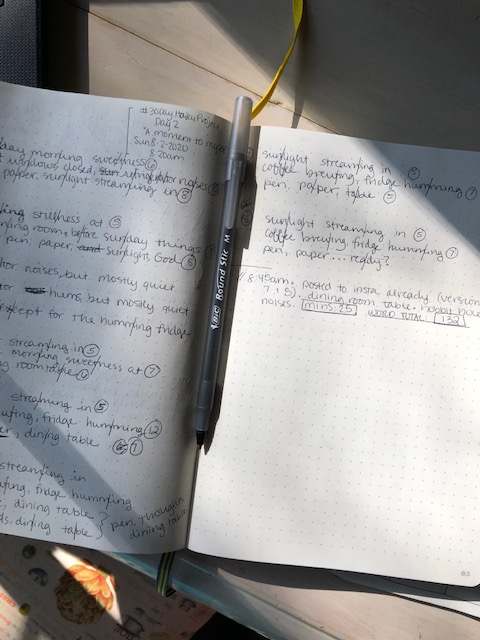 #30DayHaikuProject
Day 2
"A moment to myself
Sun 8-2-2020
8:20am
day morning sweetness 6
windows closed, refrigerator noises 8
paper, sunlight streaming in 8
stillness at 5
room, before sunday things
pen, paper, and sunlight, God 6
tor noises, but mostly quiet
tor hums, but mostly quiet
except for the humming fridge
streaming in 5
morning sweetness at 7
room table 6
streaming in 5
fridge humming 12
dining table 6 7
streaming in
fridge hummming
dining table
dining table } pen, thoughts
dining table
BIC Round Stic M
sunlight streaming in 5
coffee brewing, fridge hummming 7
pen, paper, table 5
sunlight streaming in 5
coffee brewing, fridge hummming 7
pen, paper... ready?
8:45am. posted to insta already (version
7, 5) dining room table.
noises. MINS: 25 WORD TOTAL: 132
63